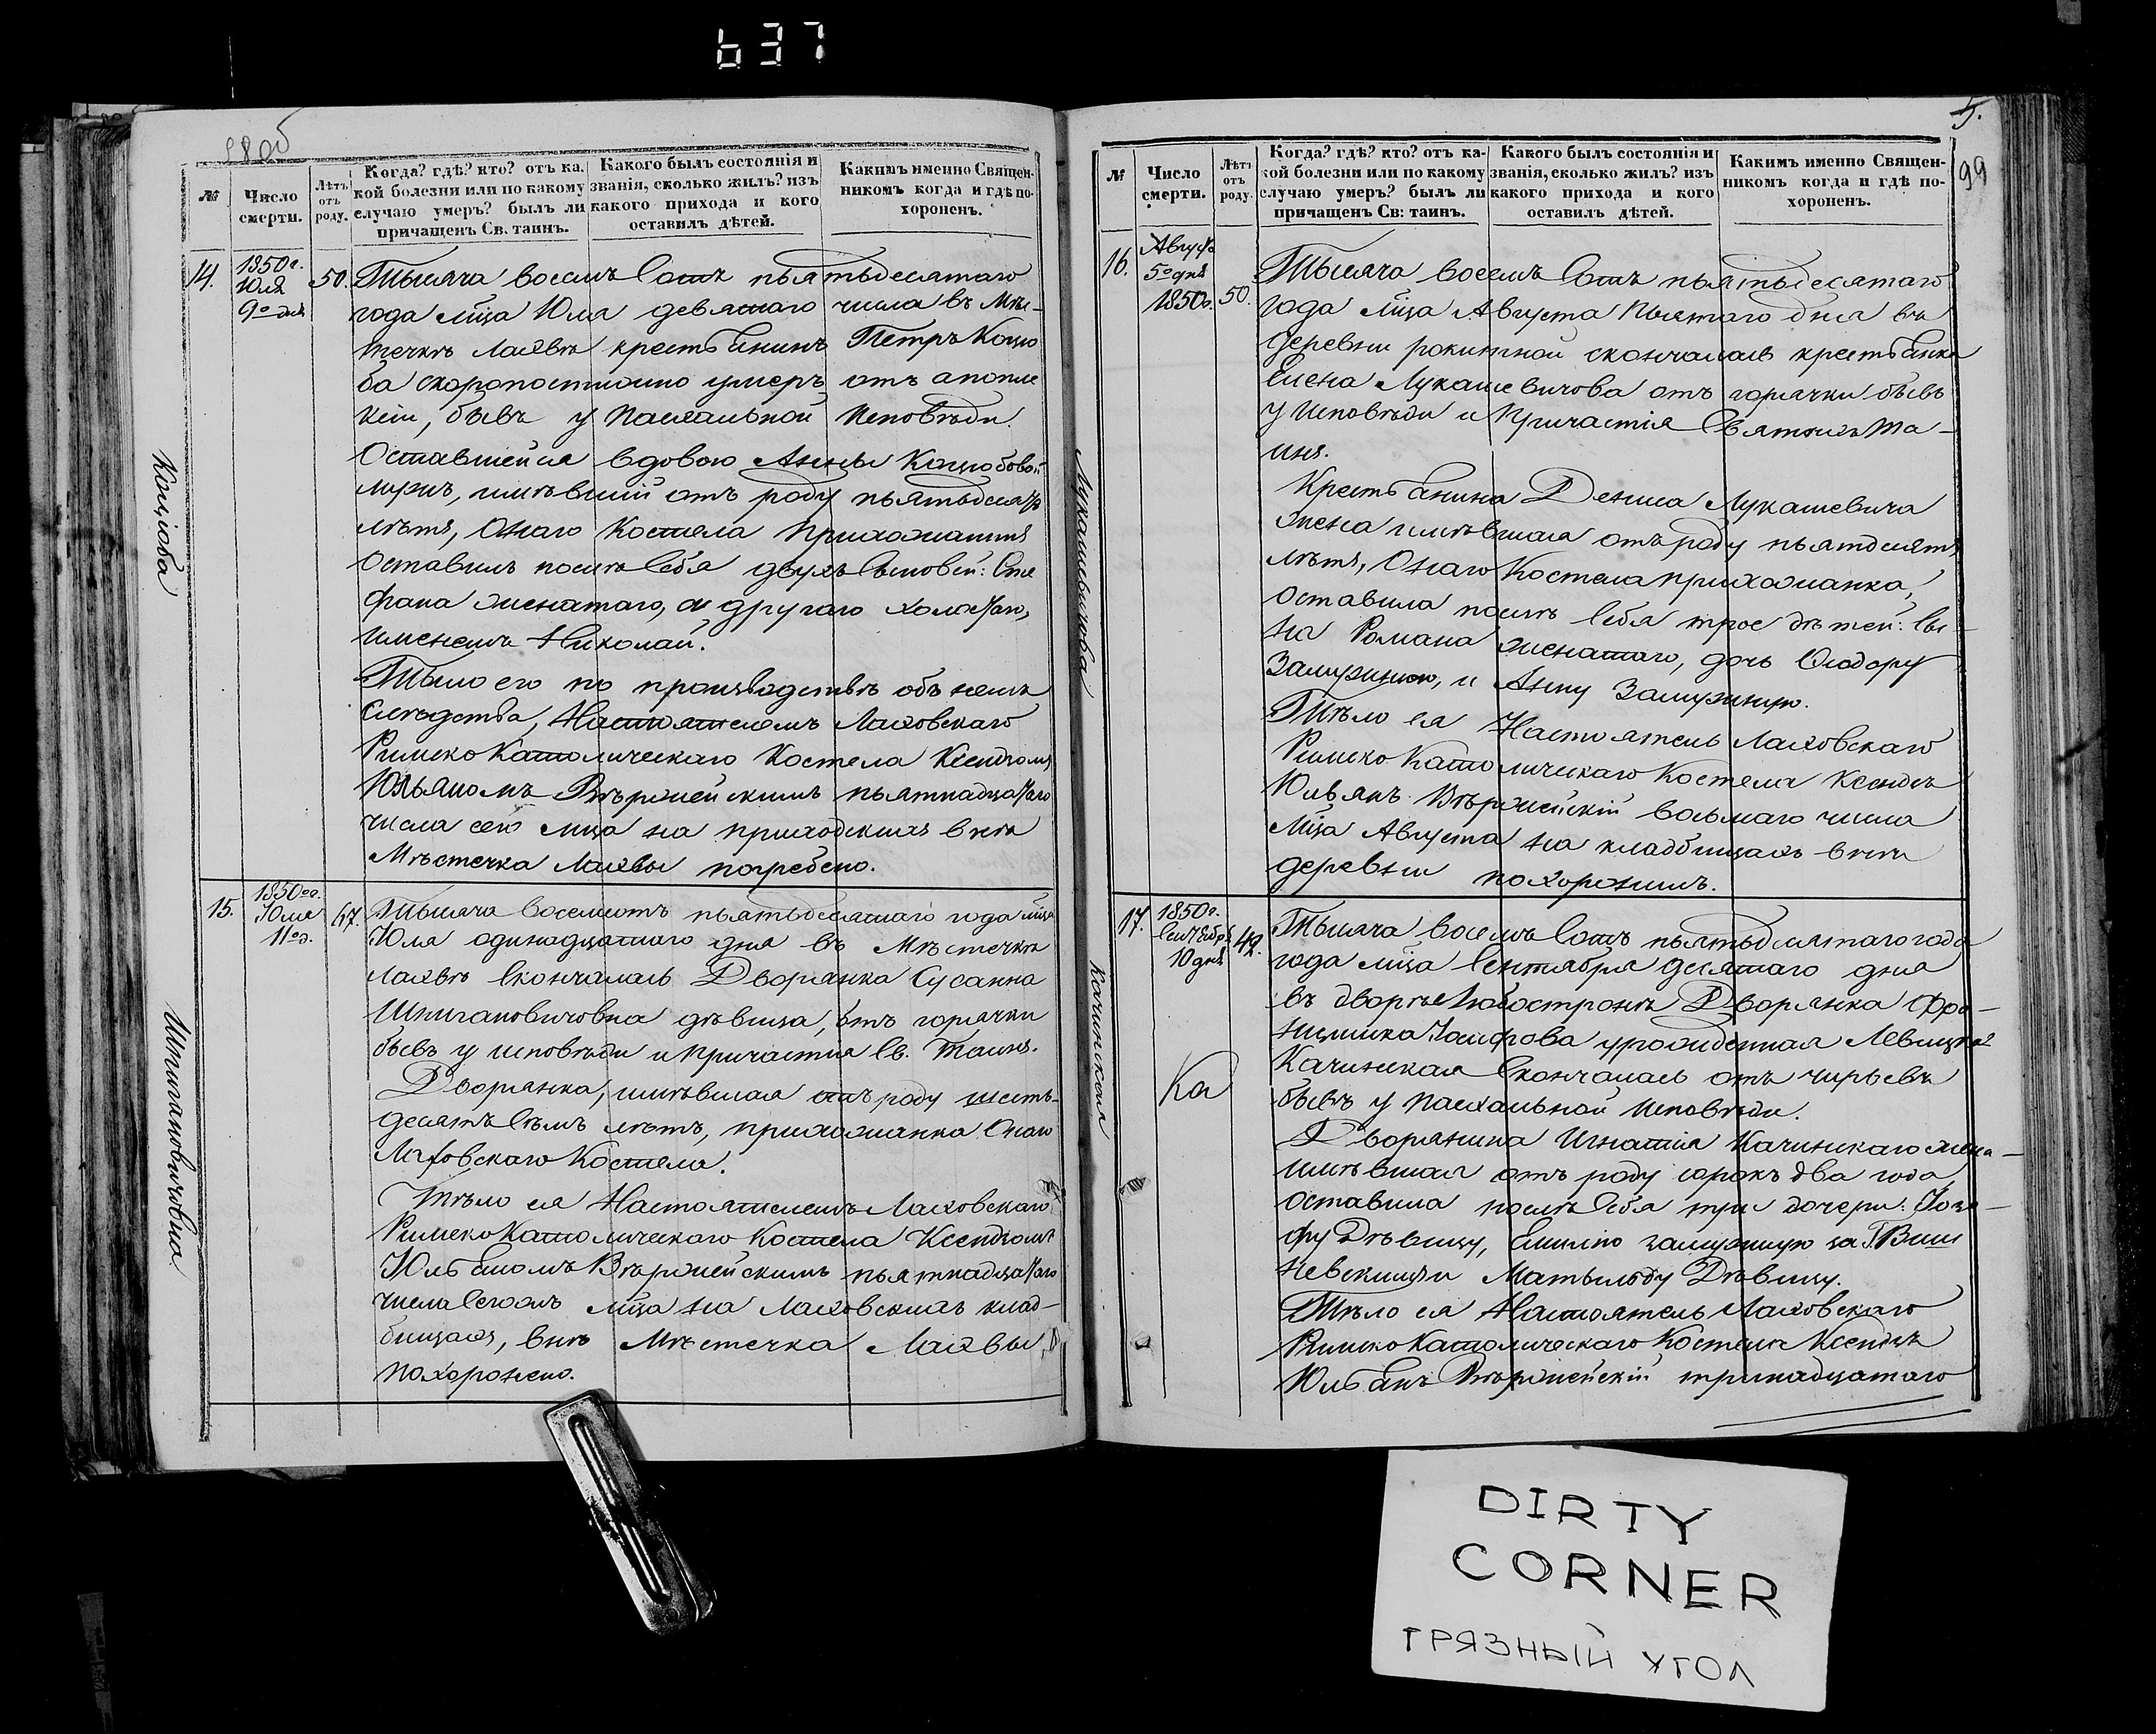 637
98об
№
Число смерти.
Лѣтъ отъ роду.
Когда? гдѣ? кто? отъ ка-
кой болезни или по какому
случаю умеръ? былъ ли
причащенъ Св. таинъ.
Какого былъ состоянія и
званія, сколько жилъ? изъ
какого прихода и кого
оставилъ дѣтей.
Какимъ именно Священ-
никомъ когда и гдѣ по-
хороненъ.
Коцюба
14.
1850 г.
Юля
9о дня
50.
Тысяча восемъ сотъ пьятьдесятаго
года мца Юля девятаго числа въ Мѣс-
течкѣ Лахвѣ крестьянинъ Петръ Коцю
ба скоропостижно умеръ отъ апопле
ксіи, бывъ у пасхальной исповѣди.
Оставшейся вдовою Анны Коцюбовой
мужъ, имѣвшій отъ роду пьятьдесятъ
лѣтъ, Онаго Костела прихожанинъ
оставилъ послѣ себя двухъ сыновей: Сте
фана женатаго, а другаго холостаго,
именемъ Николай.
Тѣло его по производствѣ объ немъ
слѣдства, Настоятелемъ Лаховскаго
Римско Католическаго Костела Ксендзомъ
Юльяномъ пьятнадцатаго
числа сего мца на приходскихъ внѣ
Мѣстечка Лахвы погребено.
Шпигановичовна
15.
1850 го г.
Юля
11 о д.
67.
Тысяча восемсотъ пьятьдесятаго года мца
Юля одинадцатаго дня въ Мѣстечкѣ
Лахвѣ скончалась Дворянка Сусанна
Шпигановичовна дѣвица, отъ горячки
бывъ у исповѣди и причастія Св. Таинъ.
Дворянка, имѣвшая отъ роду шесть-
десятъ семъ лѣтъ, прихожанка Онаго
Лаховскаго Костела.
Тѣло ея Настоятелемъ Лаховскаго
Римско Католическаго Костела Ксендзомъ
Юльяномъ пьятнадцатаго
числа сегожъ мца на Лаховскихъ клад-
бищахъ, внѣ Мѣстечка Лахвы
похоронено.
5.
99
№
Число смерти.
Лѣтъ отъ роду.
Когда? гдѣ? кто? отъ ка-
кой болезни или по какому
случаю умеръ? былъ ли
причащенъ Св: таинъ.
Какого былъ состоянія и
званія, сколько жилъ? изъ
какого прихода и кого
оставилъ дѣтей.
Какимъ именно Священ-
никомъ когда и гдѣ по-
хороненъ.
Лукашевичова
16.
Августа
5о дня
1850 г.
50.
Тысяча восемъ сотъ пьятьдесятаго
года мца Августа пьятаго дня въ
деревни рокитной скончалась крестьянка
Елена Лукашевичова отъ горячки бывъ
у исповѣди и Причастія Святыхъ Та-
инъ.
Крестьянина Дениса Лукашевича
жена имѣвшая отъ роду пьятдесятъ
лѣтъ, Онаго Костела прихожанка,
оставила послѣ себя трое дѣтей: сы-
на Романа женатаго, дочь Ѳіодору
замужнюю, и Анну замужнюю.
Тѣло ея Настоятель Лаховскаго
Римско Католическаго Костела Ксендзъ
Юльянъ восьмаго числа
мца Августа на кладбищахъ внѣ
деревни похоронилъ.
Качинская
17.
1850 г.
Сентября
10 дня
42.
Ка
Тысяча восемъ сотъ пьятьдесятаго года
года мца Сентября десятаго дня
въ дворѣ Любостронѣ Дворянка Фра-
нцишка урожденная
Качинская скончалась отъ чирьевъ
бывъ у пасхальной исповѣди.
Дворянина Игнатія Качинскаго жена-
имѣвшая отъ роду сорокъ два года,
оставила послѣ себя три дочери: Юзе-
фу Дѣвицу, Емилію замужнюю за Г. Виш
невскимъ и Матыльду Дѣвицу.
Тѣло ея Настоятель Лаховскаго
Римско Католическаго Костела Ксендзъ
Юльянъ тринадцатаго
DIRTY
CORNER
ГРЯЗНЫЙ УГОЛ